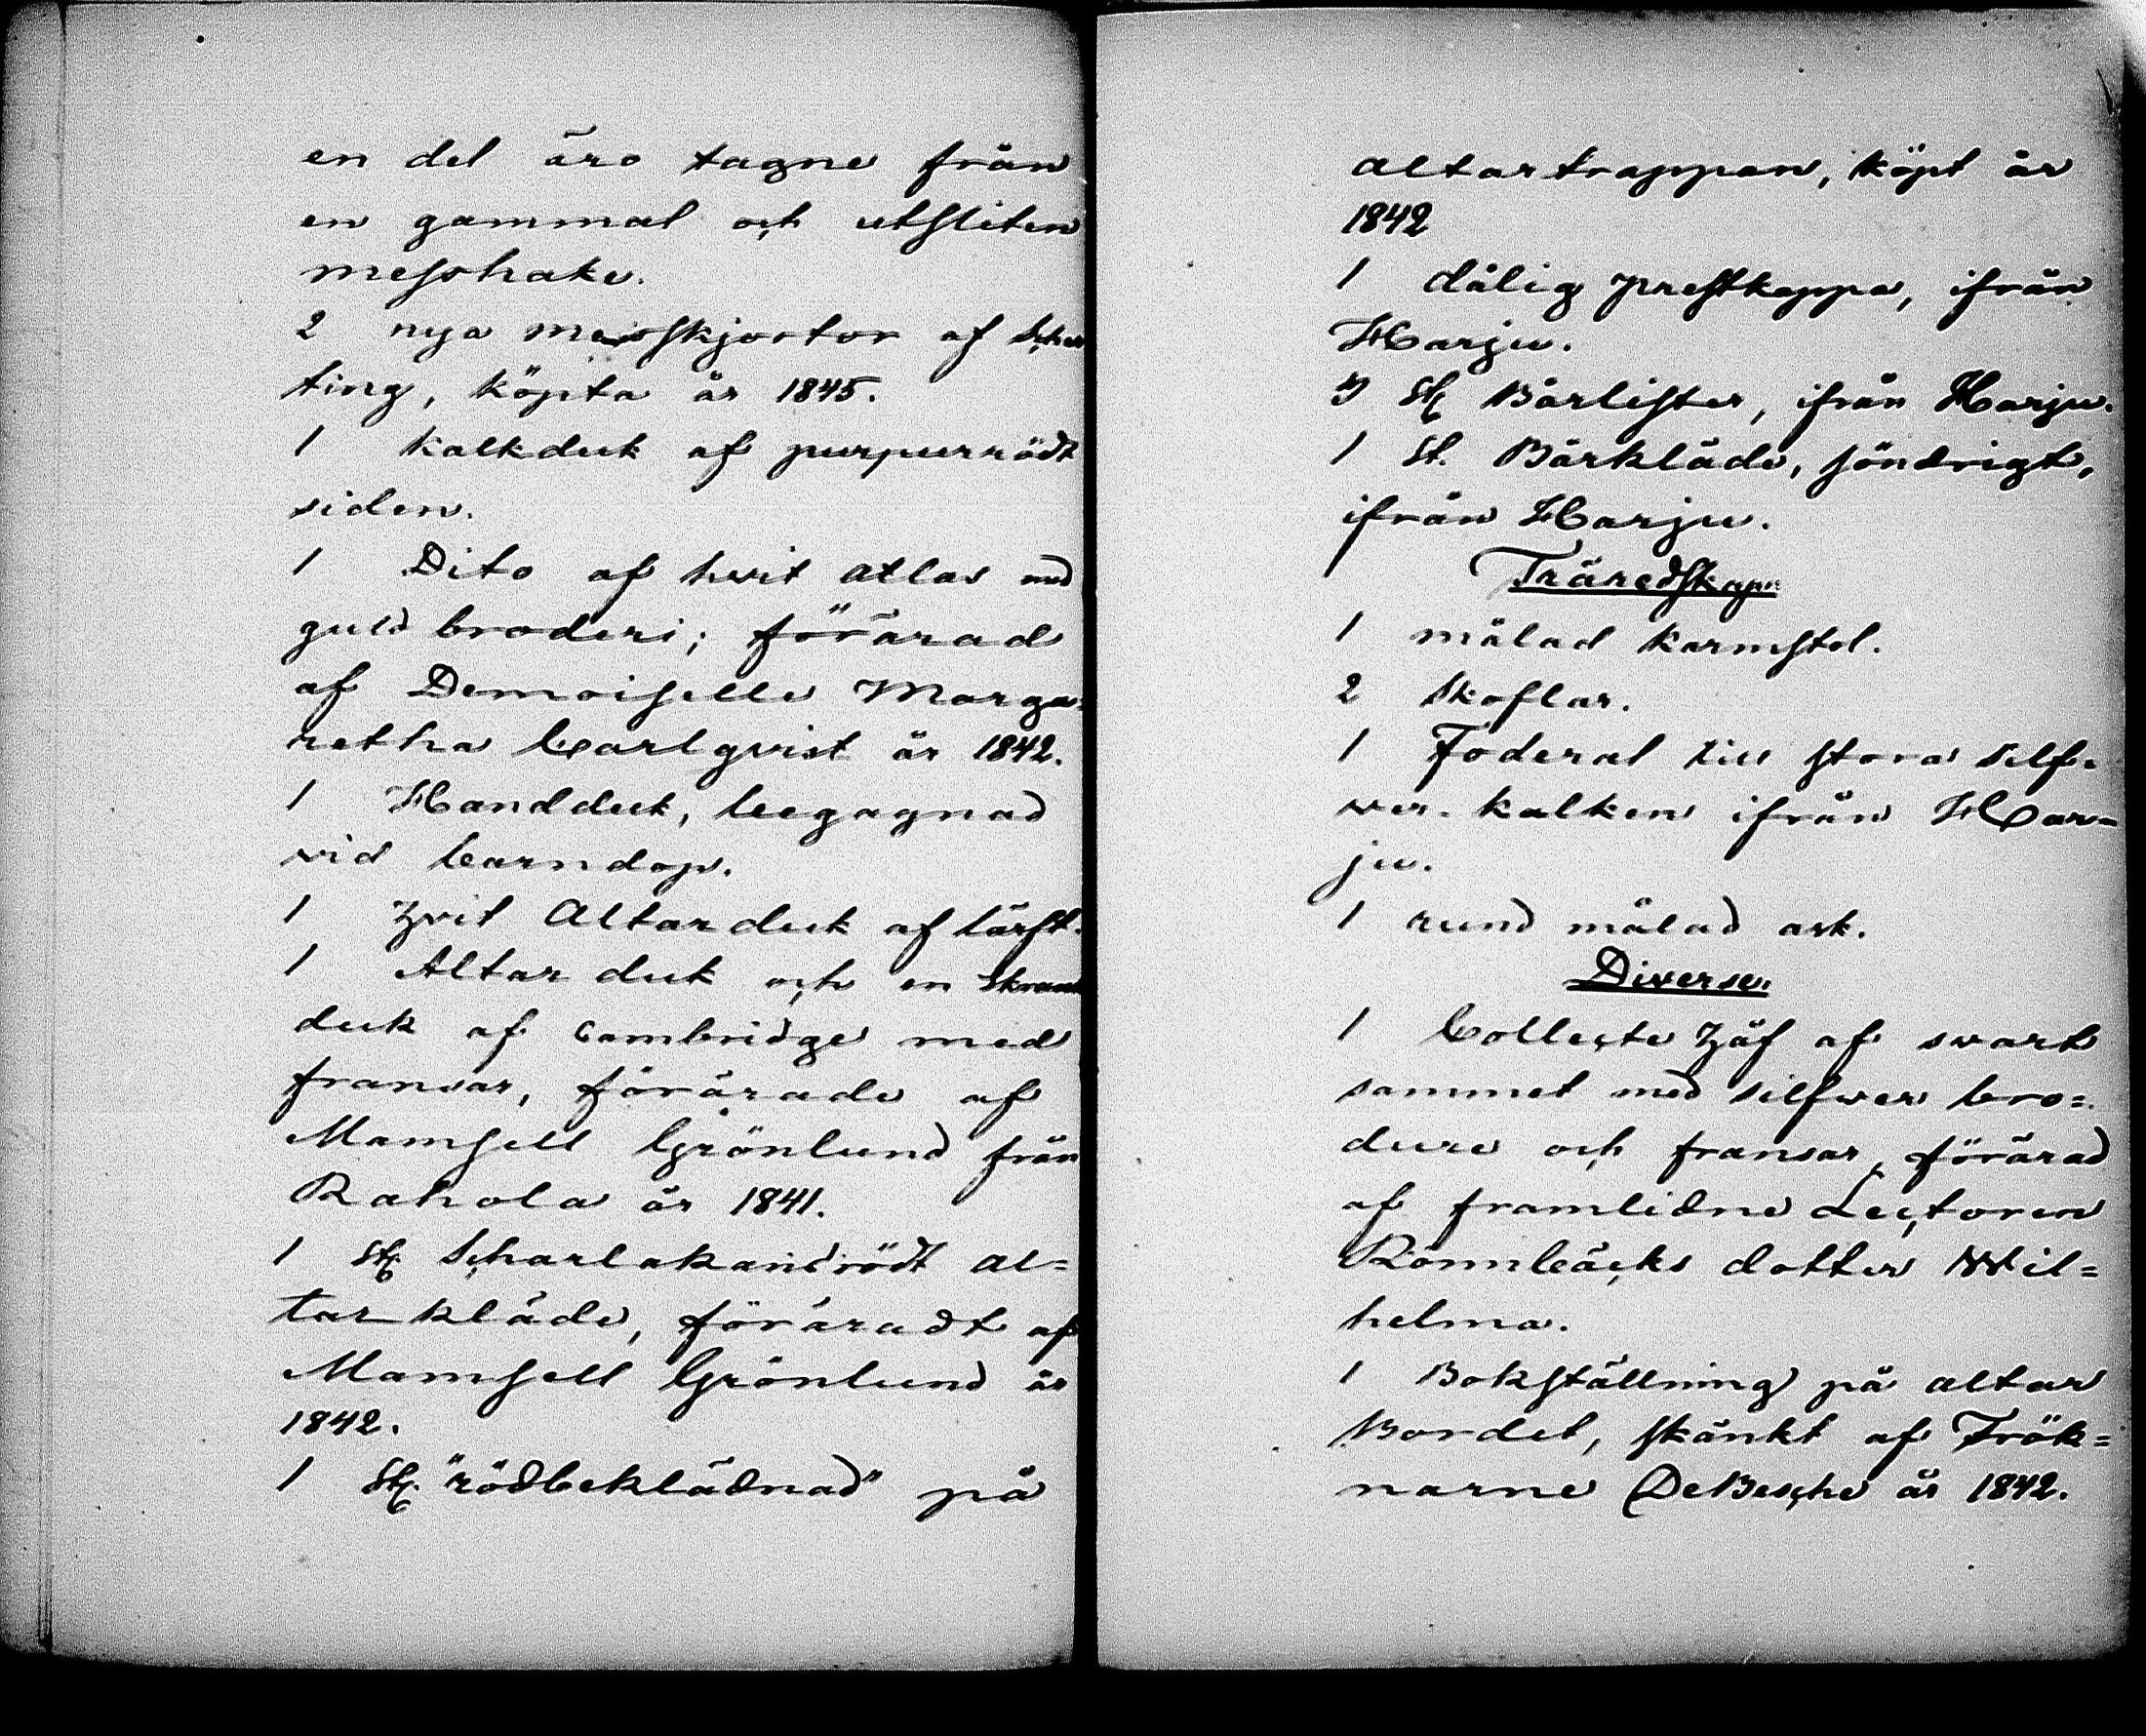 en del äro tagne från
en gammal och utsliten
messhake.
2 nya messskjortor af Scher
ting, köpta år 1845.
1 Kalkduk af purpurrödt
siden.
1 Dito af hvit atlas med
guld broderi; förärad
af Demoiselle Marga=
retha Carlqvist år 1842.
1 Handduk, begagnad
vid barndop.
1 hvit Altarduk af lärft.
1 Altar duk och en Skrank
duk af Cambridge med
fransar, förärade af
Mamsell Grönlund från
Rahola år 1841.
1 st Scharlakandrödt al=
tarkläde, föräradt af
Mamsell Grönlund år
1842.
1 st. "rödbeklädnad" på
altartrappan, köpt år
1842
1 dålig prestkappa, ifrån
Harju.
3 st Bårlister, ifrån Harju.
1 st. Bårkläde, söndrigt,
ifrån Harju.
Träredskap:
1 målad karmstol.
2 Skoflar.
1 Foderal till stora silf-
ver-kalken ifrån Har=
ju.
1 rund målad ask.
Diverse.
1 Collecte håf af svart
sammet med silfwer bro=
dure och fransar, förärad
af framlidne Lectoren
Rönnbäcks dotter Wil=
helma.
1 Bokställning på altar
Bordet, skänkt af Frök=
narne DeBesche år 1842.